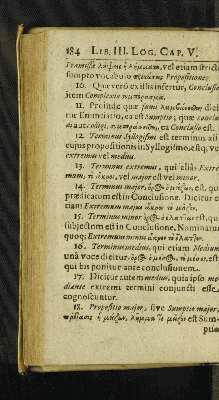 184 LIB. III. LOG. CAP. V.
Præmissæ λήψεις ἢ λήμματα, vel etiam stricte
sumpto vocabulo προτάσεις Propositiones.
10. Quæ verò ex illis infertur, Conclusio
item Complexio συμπέρασμα.
11. Proinde quæ sumi λαμβάνεσθαι dici
tur Enunciatio, ea est Sumptio; quæ conclu
di aut colligi, συμπεραίνεσθαι, ea Conclusio est.
12. Terminus Syllogismi est terminus ali
cujus propositionis in Syllogismo, estq; vel
extremus vel medius.
13. Terminus extremus, qui aliàs Extre
mum, τὸ ἄκρον, vel major est vel minor.
14. Terminus major, ὅρος ὁ μείζων, est, qui
prædicatum est in Conclusione. Dicitur e
tiam Extremum majus ἄκρον τὸ μεῖζον.
15. Terminus minor ὅρος ὁ ἐλάττων est, qui
subjectum est in Conclusione, Nominatur
quoq; Extremum minus ἄκρον τὸ ἔλαττον.
16. Terminus medius, qui etiam Medium
unâ voce dicitur, ὅρος ὁ μέσος, τὸ μέσον, est,
qui bis ponitur ante conclusionem.
17. Dicitur autem medius, quia ipso me
diante extremi termini conjuncti esse
cognoscuntur.
18. Propositio major, sive Sumptio major,
πρότασις ἡ μείζων, λῆμμα τὸ μεῖζον est Sum-
ptio